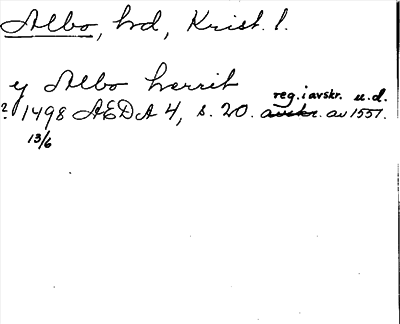 Albo, hd, Krist. l.
y Albo herrit
? 1498 AEDA 4, s. 20. avskr. reg. i avskr. u.d. av 1557.
13/6